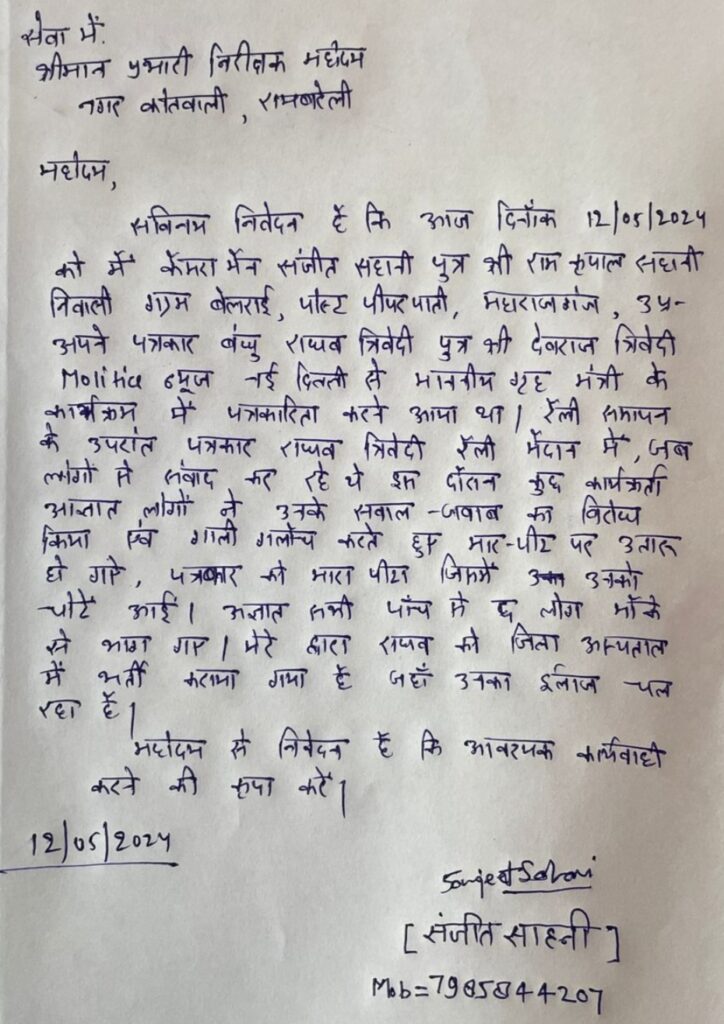 सेवा में.
श्रीमान प्रभारी निरीक्षक महोदय
नगर कोतवाली, रायबरेली
महोदय,
सविनय निवेदन है कि आज दिनाँक 12/05/2024
को मैं कैमरा मैन संजीत सहानी पुत्र श्री राम कृपाल सहानी
निवासी ग्राम बेलराई, पोस्ट पीपरपाती, महाराजगंज, उ.प्र.
अपने पत्रकार बंधु राघव त्रिवेदी पुत्र श्री देवराज त्रिवेदी
Molitics न्यूज नई दिल्ली से माननीय गृह मंत्री के
कार्यक्रम में पत्रकारिता करने आया था। रैली समापन
के उपरांत पत्रकार राघव त्रिवेदी रैली मैदान में, जब
लोगों से संवाद कर रहे थे इस दौरान कुछ कार्यकर्ता
अज्ञात लोगों ने उनके सवाल-जवाब का विरोध
किया एवं गाली गलौच करते हुए मार-पीट पर उतारू
हो गए, पत्रकार को मारा पीटा जिसमें उनको
चोटें आई। अज्ञात सभी पाँच से छ लोग मौके
से भाग गए। मेरे द्वारा राघव को जिला अस्पताल
में भर्ती कराया गया है जहाँ उनका ईलाज चल
रहा है।
महोदय से निवेदन है कि आवश्यक कार्यवाही
करने की कृपा करें।
12/05/2024
Sanjeet Sahani
[संजीत साहनी]
Mob=7985844207